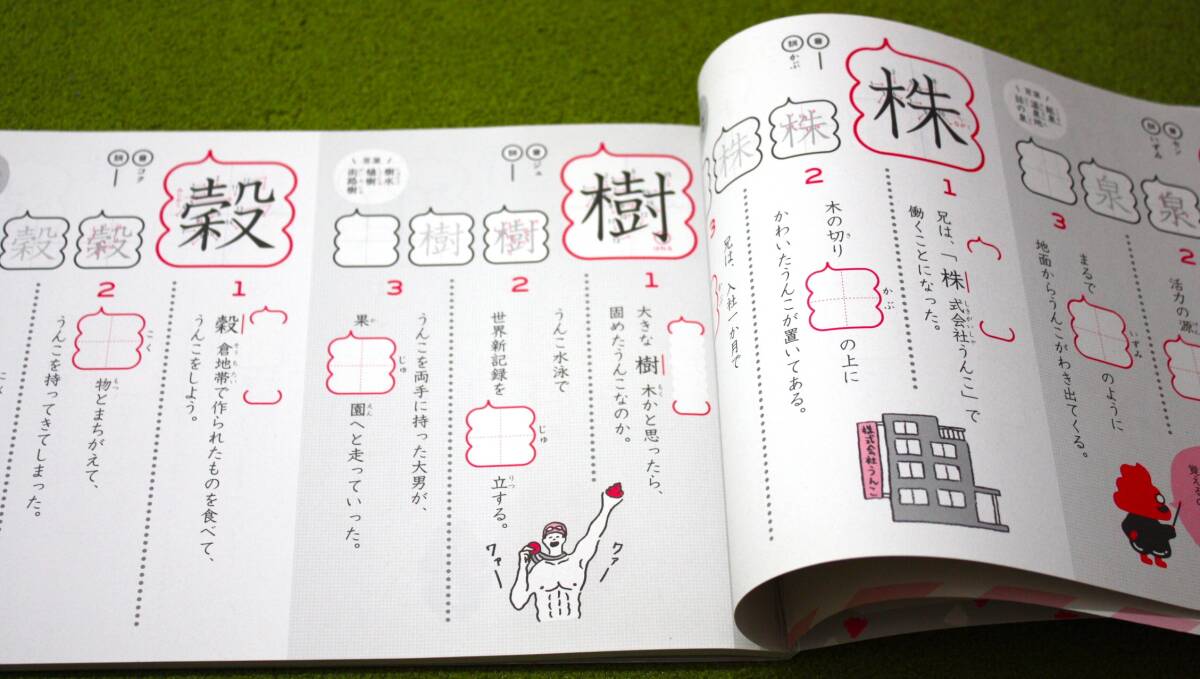 音 セン
訓 いずみ
泉
泉
2
活力の源
3
まるで
いずみ
のように
地面からうんこがわき出てくる。
言葉
温泉地
知の泉
音
訓 かぶ
株
株
株
1
兄は、「株式会社うんこ」で
しきがいしゃ
働くことになった。
2
木の切り
かぶ
の上に
かわいたうんこが置いてある。
3
兄は、入社一か月で
株式会社うんこ
音 ジュ
訓
樹
樹
樹
言葉
樹氷
植樹
街路樹
1
大きな樹木かと思ったら、
もく
固めたうんこなのか。
2
うんこ水泳で
世界新記録を
じゅ
立する。
りつ
3
うんこを両手に持った大男が、
果
か
じゅ
園へと走っていった。
えん
ワァー
ワァー
音 コク
訓
穀
穀
穀
1
穀倉地帯で作られたものを食べて、
そうちたい
うんこをしよう。
2
こく
物とまちがえて、
もつ
うんこを持ってきてしまった。